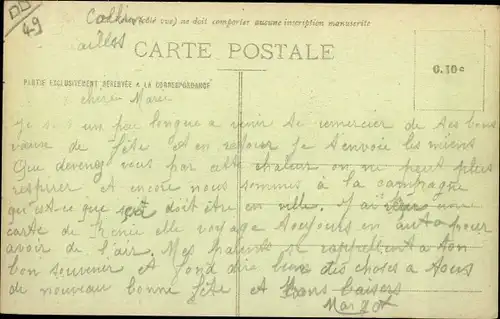 49
Collin
ce côté (verso) ne doit comporter aucune inscription manuscrite
ailles
CARTE POSTALE
0.10c
PARTIE EXCLUSIVEMENT RÉSERVÉE A LA CORRESPONDANCE
chere Marie
Je suis un peu longue a venir te remercier de tes bons
vœux de fête et en retour je t'envoie les miens
Que devenez vous par cette chaleur on ne peut plus
respirer et encore nous sommes à la campagne
qu'est-ce que doit être en ville. J'ai une
carte de Renée elle voyage toujours en auto pour
avoir de l'air. Mes parents se rappellent a ton
bon souvenir et font dire bien des choses a tous
de nouveau bonne fête et bons baisers
Margot